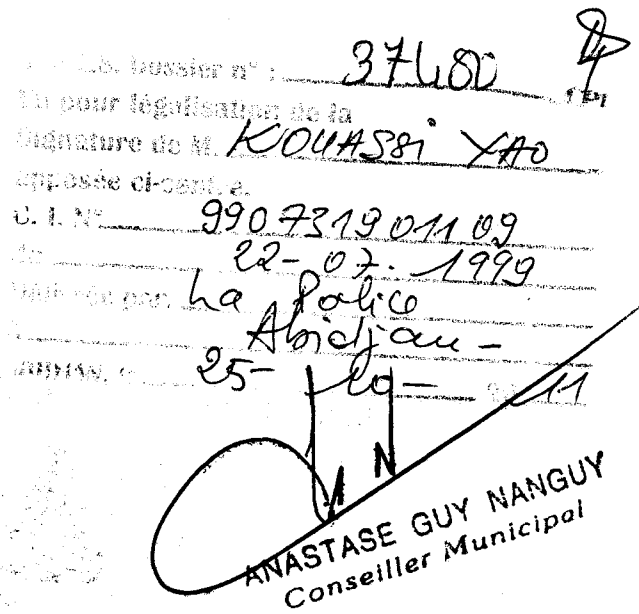 Dossier n° : 37480
Vu pour légalisation de la
Signature de M. KOUASSI YAO
apposée ci-contre.
C. I. N° 990731901109
du 22-07-1999
Délivrée par La Police
Abidjan -
25-10- 11
ANASTASE GUY NANGUY
Conseiller Municipal